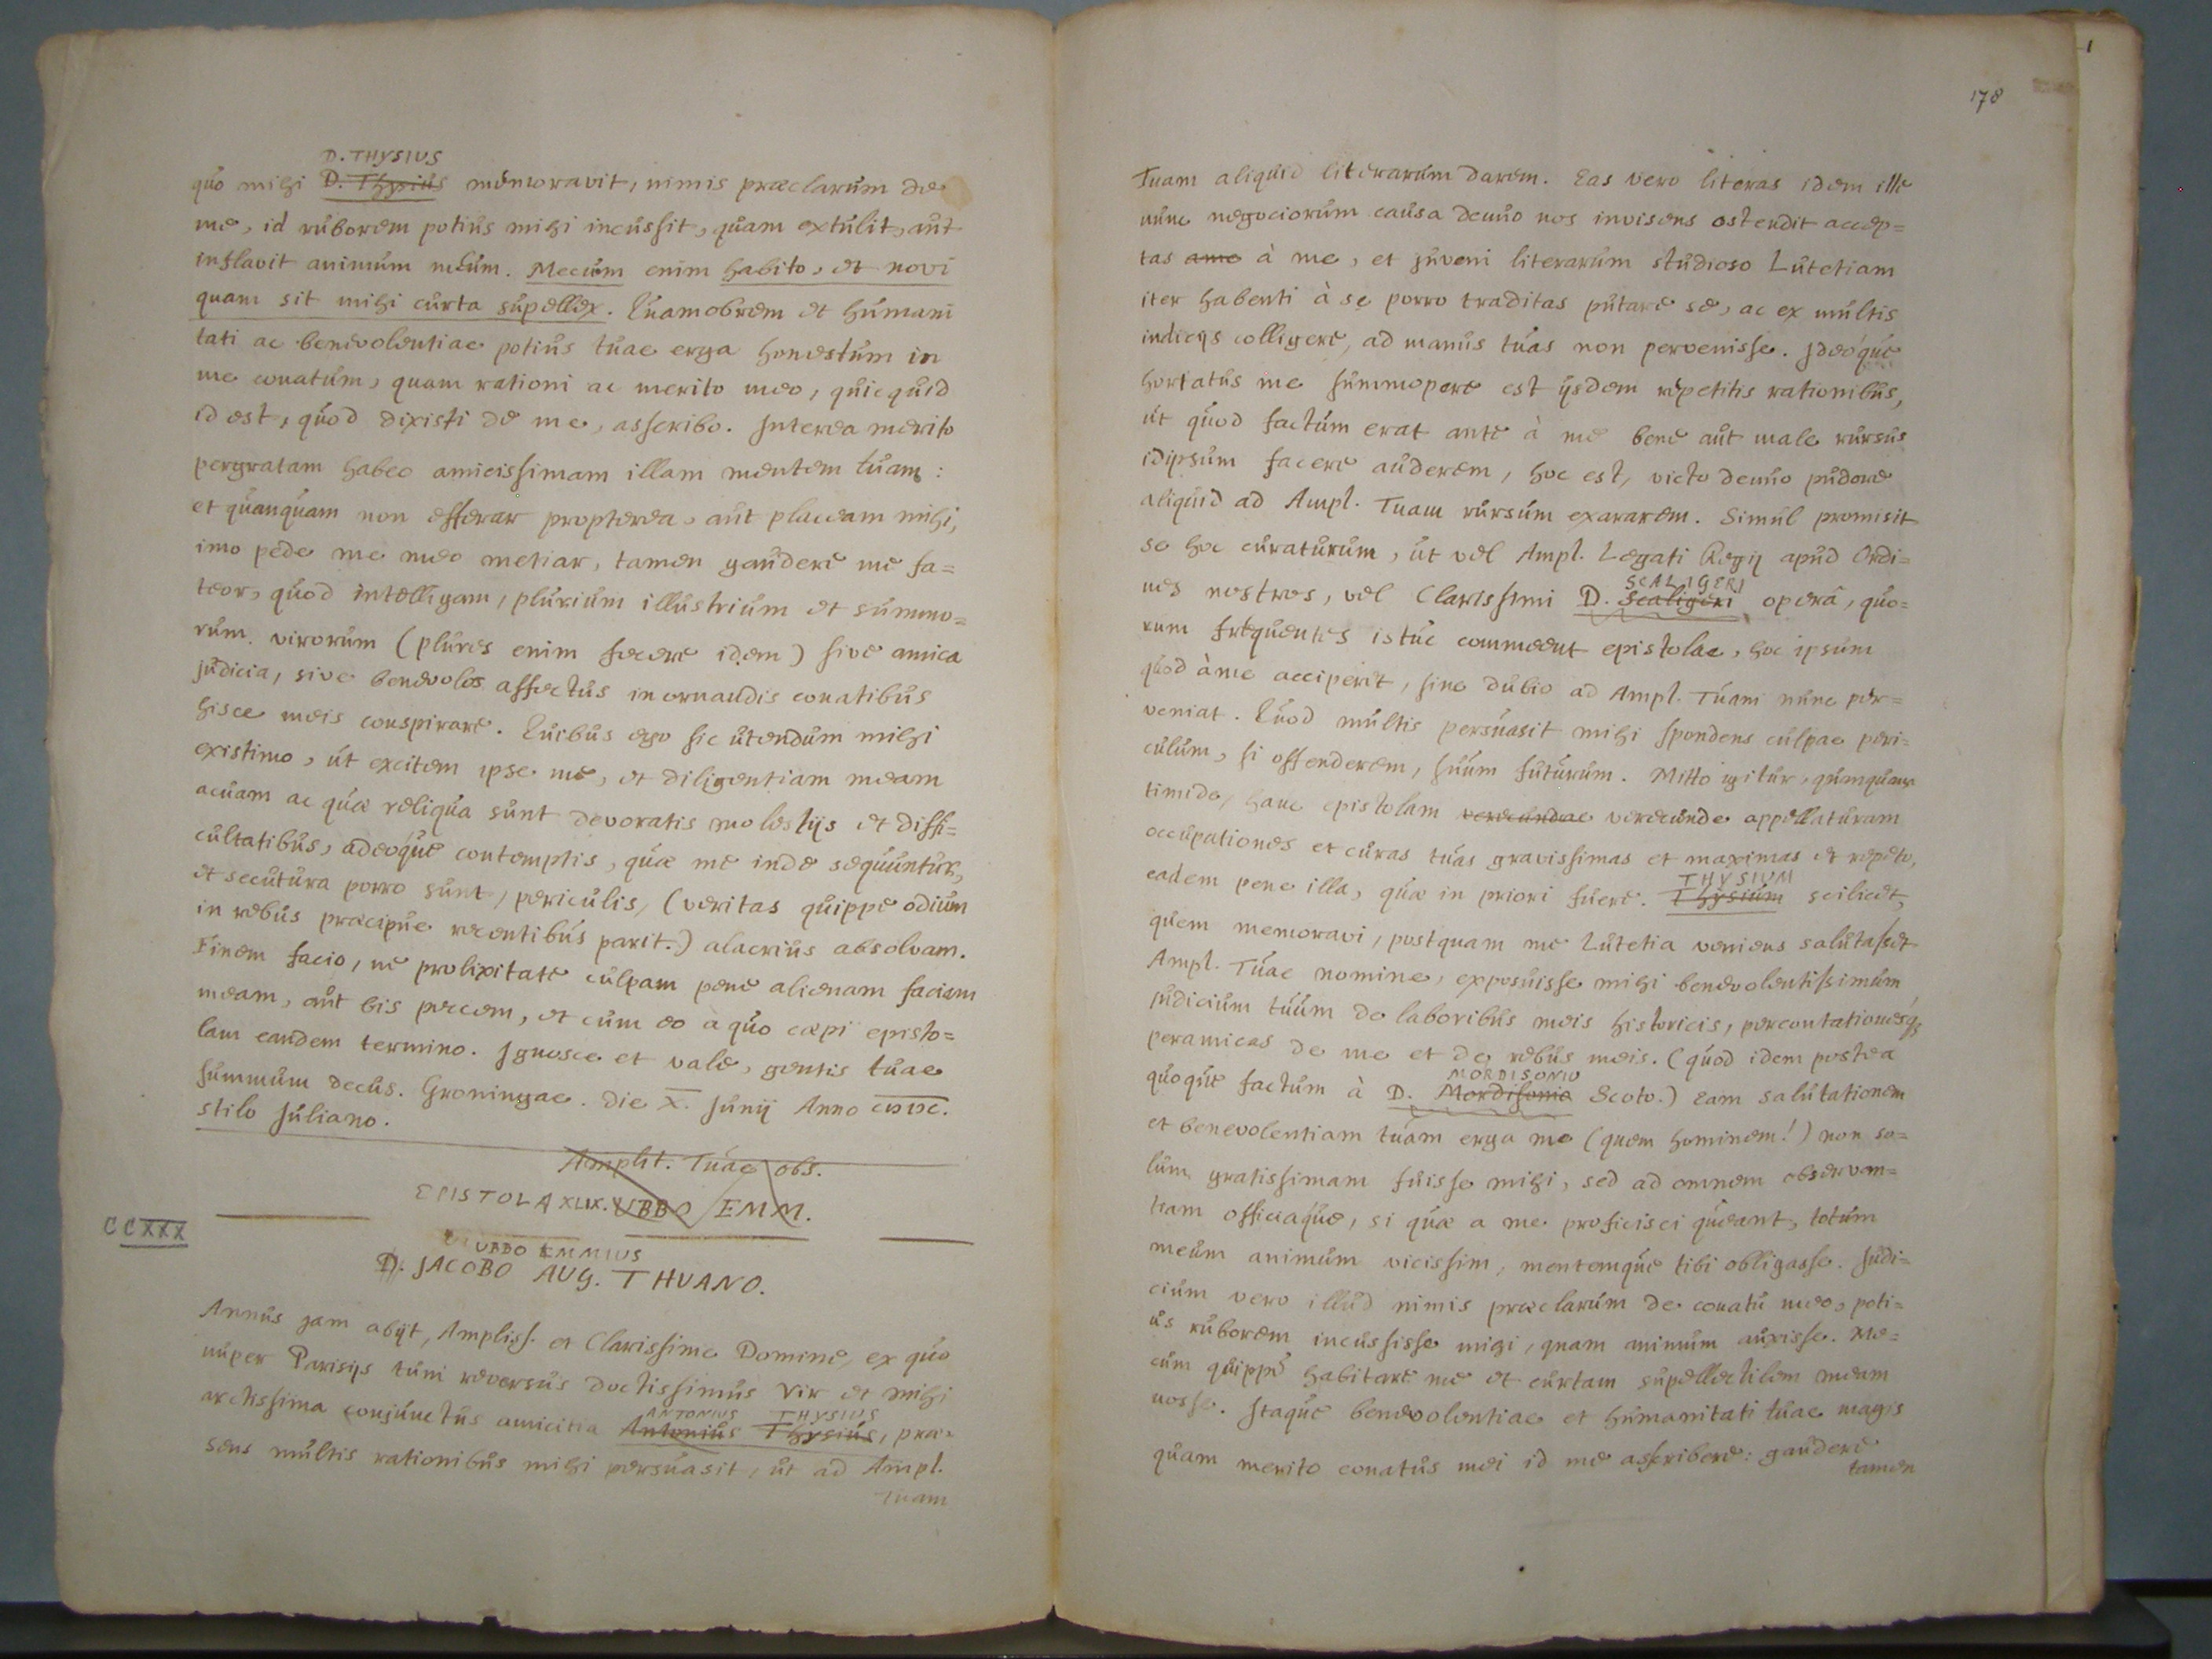 D. THYSIUS
quo mihi D. Thysius memoravit, nimis praeclarum de
me, id ruborem potius mihi incussit, quam extulit, aut
inflavit animum meum. Mecum enim habito, et novi
quam sit mihi curta supellex. Quamobrem et humani
tati ac benevolentiae potius tuae erga honestum in
me conatum, quam rationi ac merito meo, quicquid
id est, quod dixisti de me, asscribo. Interea merito
pergratam habeo amicissimam illam mentem tuam:
et quanquam non efferar propterea, aut placeam mihi,
imo pede me meo metiar, tamen gaudere me fa=
teor, quod intelligam, plurium illustrium et summo=
rum virorum (plures enim fecere idem) sive amica
judicia, sive benevolos affectus in ornandis conatibus
hisce meis conspirare. Quibus ego sic utendum mihi
existimo, ut excitem ipse me, et diligentiam meam
acuam ac quae reliqua sunt devoratis molestijs et diffi=
cultatibus, adeoque contemptis, quae me inde sequuntur,
et secutura porro sunt, periculis, (veritas quippe odium
in rebus praecipue recentibus parit.) alacrius absolvam.
Finem facio, ne prolixitate culpam pene alienam faciam
meam, aut bis peccem, et cum eo a quo coepi episto=
lam eandem termino. Ignosce et vale, gentis tuae
summum decus. Groningae. die X. Junij Anno
stilo Juliano.
Amplit. Tuae obs.
EPISTOLA XLIX. UBBO EMM.
CCXXX
UBBO EMMIUS
D. JACOBO AUG. THUANO.
Annus jam abijt, Ampliss. et Clarissime Domine, ex quo
nuper Parisijs tum reversus doctissimus vir et mihi
arctissima conjunctus amicitia
ANTONIUS THYSIUS
Antonius Thysius, prae=
sens multis rationibus mihi persuasit, ut ad Ampl.
Tuam
178
Tuam aliquid literarum darem. Eas vero literas idem ille
nunc negociorum causa denuo nos invisens ostendit accep=
tas ame à me, et juveni literarum studioso Lutetiam
iter habenti à se porro traditas putare se, ac ex multis
indicijs colligere, ad manus tuas non pervenisse. Ideoque
hortatus me summopere est ijsdem repetitis rationibus,
ut quod factum erat ante à me bene aut male rursus
idipsum facere auderem, hoc est, victo denuo pudore
aliquid ad Ampl. Tuam rursum exararem. Simul promisit
se hoc curaturum, ut vel Ampl. Legati Regij apud Ordi=
SCALIGERI
nes nostros, vel Clarissimi D. Scaligeri operâ, quo=
rum frequentes istuc commeent epistolae, hoc ipsum
quod à me acciperit, sine dubio ad Ampl. Tuam nunc per=
veniat. Quod multis persuasit mihi spondens culpae peri=
culum, si offenderem, suum futurum. Mitto igitur, quanquam
timide, hanc epistolam verecundae verecunde appellaturam
occupationes et curas tuas gravissimas et maximas et repeto,
THYSIUM
eadem pene illa, quae in priori fuere. Thysium scilicet,
quem memoravi, postquam me Lutetia veniens salutasset
Ampl. Tuae nomine, exposuisse mihi benevolentissimum
judicium tuum de laboribus meis historicis, percontationesq;
peramicas de me et de rebus meis. (quod idem postea
MORDISONIO
quoque factum à D. Mordisonio Scoto.) Eam salutationem
et benevolentiam tuam erga me (quem hominem!) non so=
lum gratissimam fuisse mihi, sed ad omnem observan=
tiam officiaque, si quae a me proficisci queant, totum
meum animum vicissim, mentemque tibi obligasse. Judi=
cium vero illud nimis praeclarum de conatu meo, poti=
us ruborem incussisse mihi, quam animum auxisse. Me=
cum quippe habitare me et curtam supellectilem meam
nosse. Itaque benevolentiae et humanitati tuae magis
quam merito conatus mei id me asscribere: gaudere
tamen